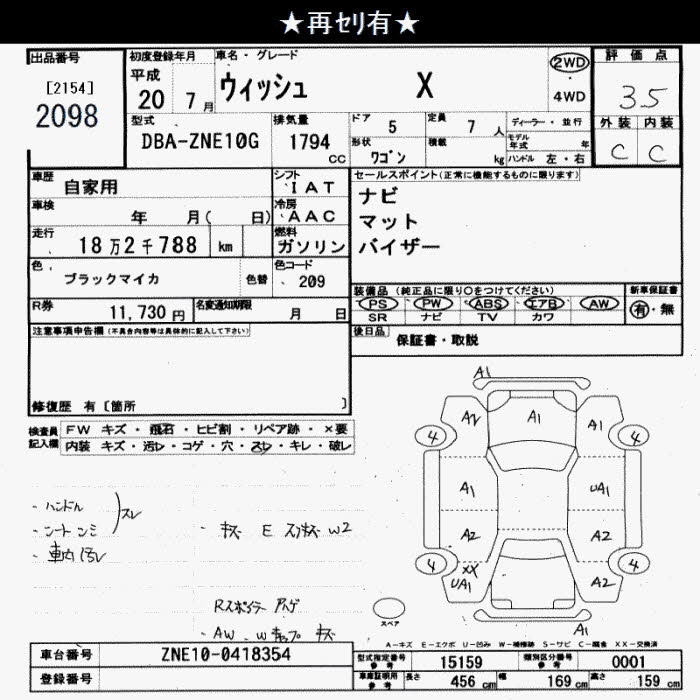 ★再ｾﾘ有★
出品番号
[2154]
2098
初度登録年月
平成
20 7月
車名・グレード
ウィッシュ X
2WD
4WD
評価点
3.5
外装 内装
C C
型式
DBA-ZNE10G
排気量
1794
CC
ドア
5
定員
7 人
形状
ワゴン
積載
kg
ディーラー・並行
モデル
年式 年
ハンドル 左・右
車歴
自家用
シフト
IAT
車検
年 月( 日)
冷房
AAC
走行
18万2千788 km
燃料
ガソリン
色
ブラックマイカ
色替
色コード
209
R券
11,730円
名変通知期限
月 日
セールスポイント(正常に機能するものに限ります)
ナビ
マット
バイザー
装備品 (純正品に限り○をつけてください)
PS PW ABS エアB AW
SR ナビ TV カワ
新車保証書
有・無
後日品
保証書・取説
注意事項申告欄 (不具合内容等は具体的に記入して下さい)
修復歴 有 [箇所 ]
検査員
記入欄
FW キズ・飛石・ヒビ割・リペア跡・×要
内装 キズ・汚レ・コゲ・穴・スレ・キレ・破レ
・ハンドル
・シートシミ
スレ
・車内汚レ
・キズ E スリキズ W2
Rスポイラー
・AW、Wキャップ キズ
A1
A2 A1 A1
4 4
A1 UA1
A2 A2
4 4
XX
UA1 A2
A1
スペア
A－キズ E－エクボ U－凹み W－補修跡 S－サビ C－腐食 XX－交換済
車台番号
ZNE10-0418354
登録番号
型式指定番号
参考
15159
類別区分番号
参考
0001
車庫証明用
参考
長さ
456 cm
幅
169 cm
高さ
159 cm